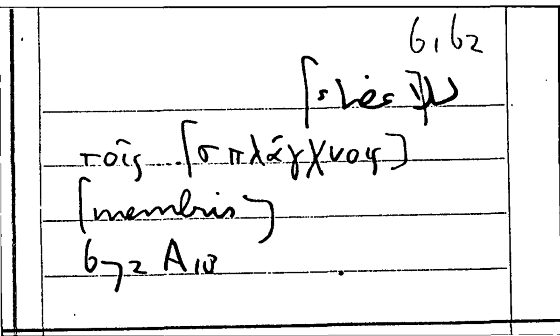 6,62
τοῖς [σπλάγχνοις]
[membris]
672 A10